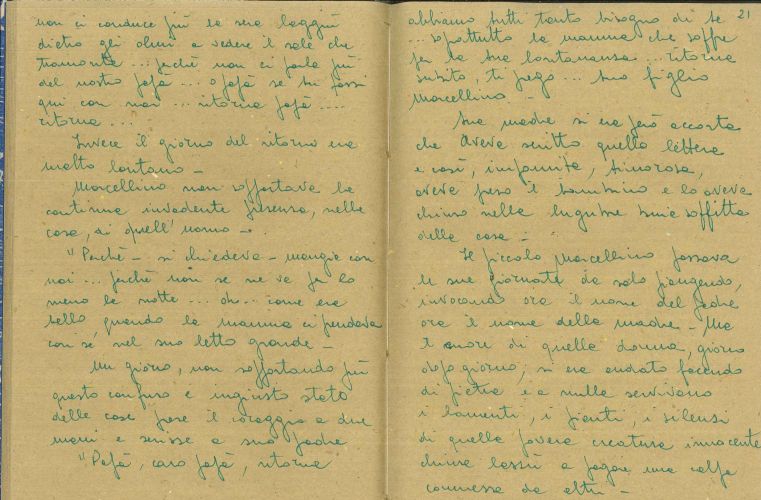 non ci conduce più la sera laggiù
dietro gli olmi a vedere il sole che
tramonta ... perché non ci parla più
del nostro papà ... o papà se tu fossi
qui con noi ... ritorna papà ....
ritorna ...
Invece il giorno del ritorno era
molto lontano -
Marcellino non sopportava la
continua invadente presenza, nella
casa, di quell'uomo -
"Perché - si chiedeva - mangia con
noi ... perché non se ne va per lo
meno la notte ... oh .. come era
bello, quando la mamma ci prendeva
con sé nel suo letto grande -
Un giorno, non sopportando più
questo confuso e ingiusto stato
delle cose prese il coraggio a due
mani e scrisse a suo padre
"Papà, caro papà, ritorna
21
abbiamo tutti tanto bisogno di te
... soprattutto la mamma che soffre
per la tua lontananza ... ritorna
subito, ti prego ... tuo figlio
Marcellino -
Sua madre si era però accorta
che aveva scritto quella lettera
e così, impaurita, timorosa,
aveva preso il bambino e lo aveva
chiuso nella lugubre buia soffitta
della casa -
Il piccolo Marcellino passava
le sue giornate da solo piangendo,
invocando ora il nome del padre
ora il nome della madre - Ma
il cuore di quella donna, giorno
dopo giorno, si era andato facendo
di pietra e a nulla servivano
i lamenti, i pianti, i silenzi
di quella povera creatura innocente
chiusa lassù a pagare una colpa
commessa da altri -